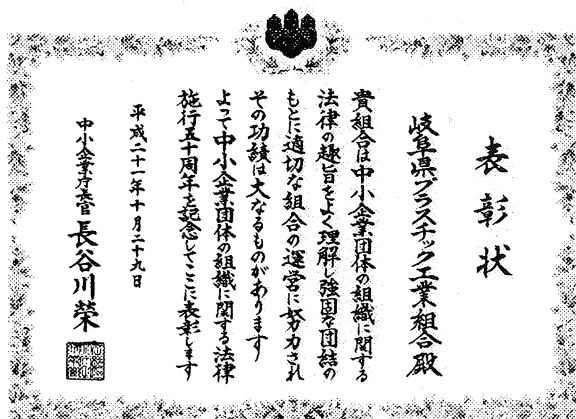 表彰状
岐阜県プラスチック工業組合殿
貴組合は中小企業団体の組織に関する
法律の趣旨をよく理解し強固な団結の
もとに適切な組合の運営に努力され
その功績は大なるものがあります
よって中小企業団体の組織に関する法律
施行五十周年を記念してここに表彰します
平成二十一年十月二十九日
中小企業庁長官 長谷川榮